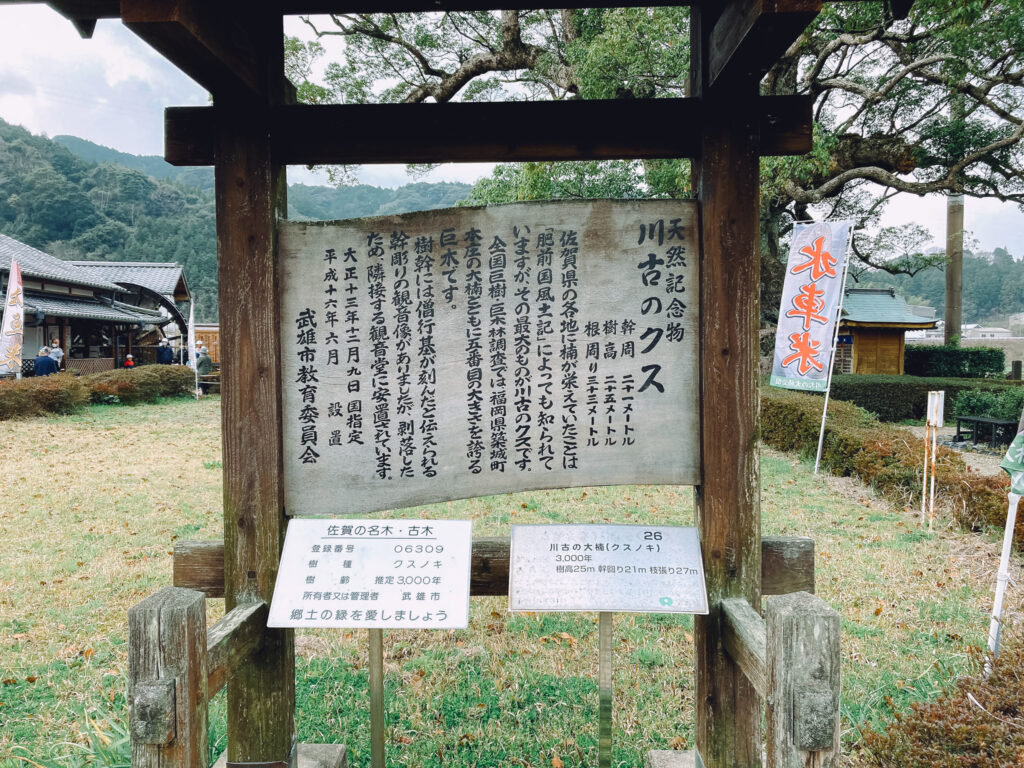 天然記念物
川古のクス
幹周 二十一メートル
樹高 二十五メートル
根周り三十三メートル
佐賀県の各地に楠が栄えていたことは
『肥前国風土記』によっても知られて
いますが、その最大のものが川古のクスです。
全国巨樹・巨木林調査では福岡県築城町
本庄の大楠とともに五番目の大きさを誇る
巨木です。
樹幹には僧行基が刻んだと伝えられる
幹彫りの観音像がありましたが、剥落した
ため、隣接する観音堂に安置されています。
大正十三年十二月九日 国指定
平成十六年六月 設置
武雄市教育委員会
佐賀の名木・古木
登録番号 06309
樹種 クスノキ
樹齢 推定3,000年
所有者又は管理者 武雄市
郷土の緑を愛しましょう
26
川古の大楠(クスノキ)
3,000年
樹高25m 幹回り21m 枝張り27m
水車米